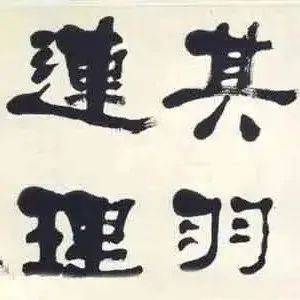 其羽
連理